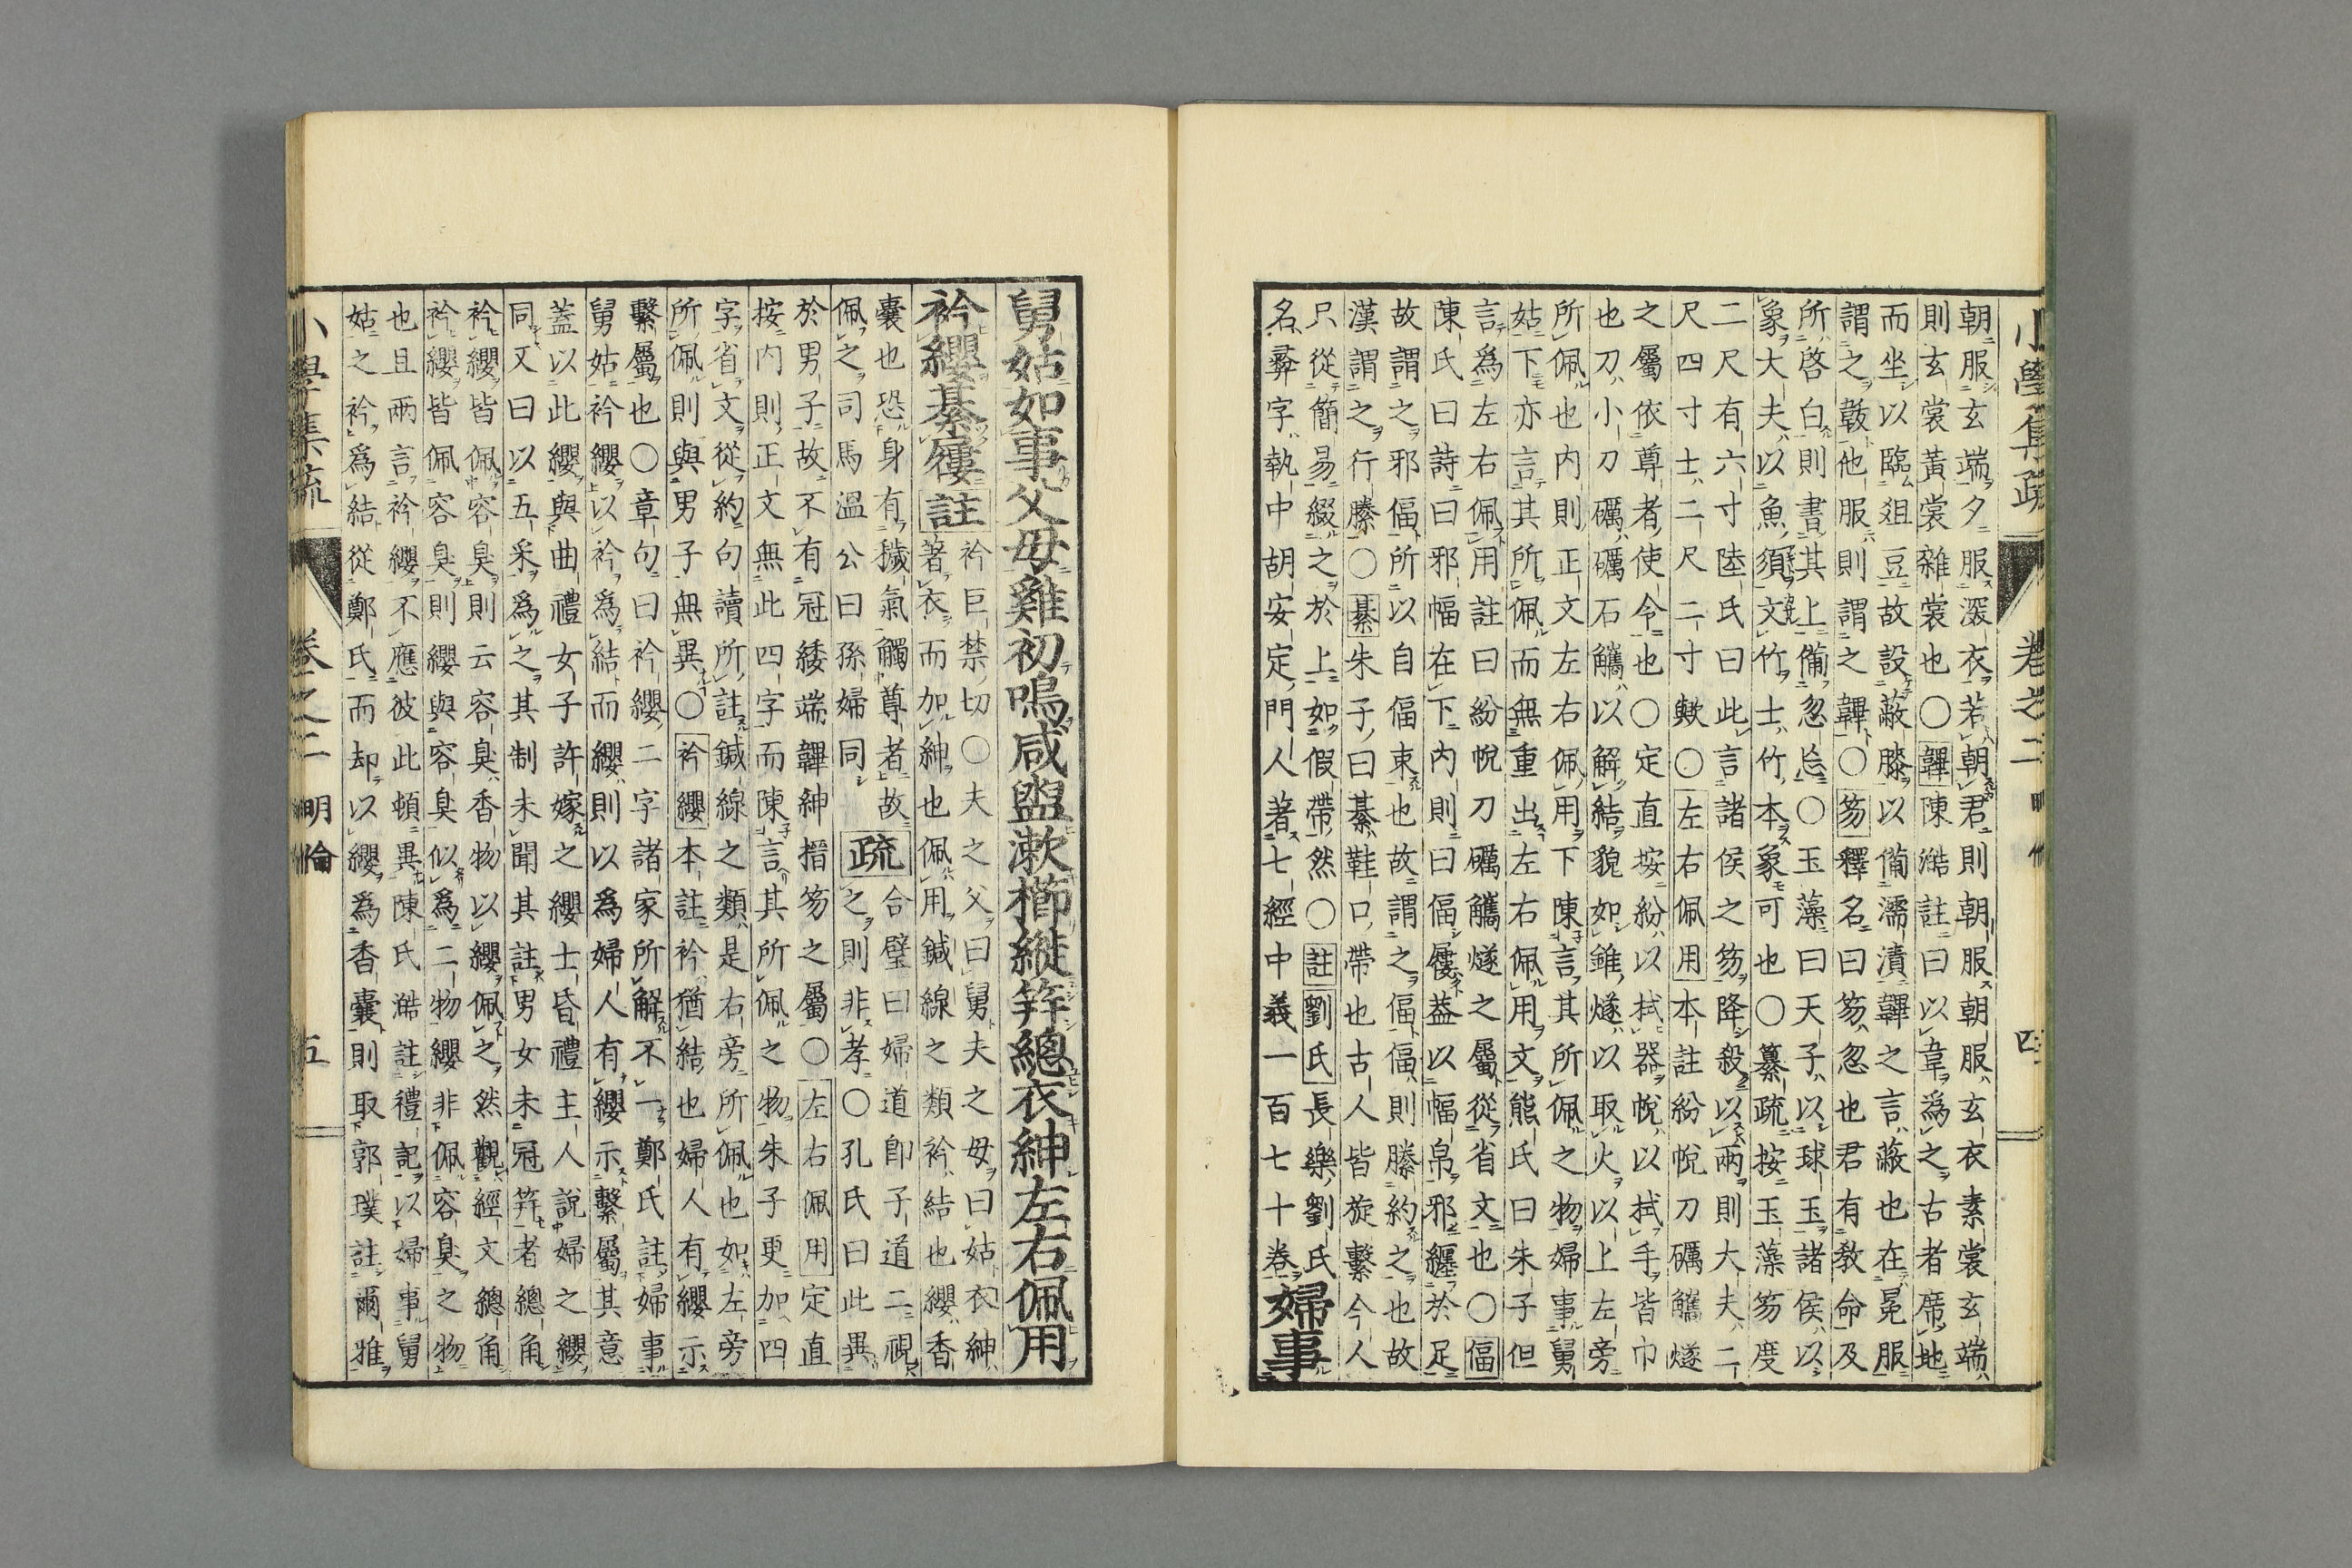 小學集疏 卷之二 明倫 四
朝服玄端夕服深衣若朝君則朝服朝服玄衣素裳玄端
則玄裳黃裳雜裳也〇韠陳澔註曰以韋爲之古者席地
而坐以臨俎豆故設蔽膝以備濡漬韠之言蔽也在冕服
謂之韍他服則謂之韠〇笏釋名曰笏忽也君有敎命及
所啓白則書其上備忽忘〇玉藻曰天子以球玉諸侯以
象大夫以魚須文竹士竹本象可也〇纂疏按玉藻笏度
二尺有六寸陸氏曰此言諸侯之笏降殺以兩則大夫二
尺四寸士二尺二寸歟〇左右佩用本註紛帨刀礪觿燧
之屬依尊者使令也〇定直按紛以拭器帨以拭手皆巾
也刀小刀礪礪石觿以解結貌如錐燧以取火以上左旁
所佩也内則正文左右佩用下陳言其所佩之物婦事舅
姑下亦言其所佩而無重出左右佩用文熊氏曰朱子但
言爲左右佩用註曰紛帨刀礪觿燧之屬從省文也〇偪
陳氏曰詩曰邪幅在下内則曰偪屨蓋以幅帛邪纏於足
故謂之邪偪所以自偪束也故謂之偪偪則縢約之也故
漢謂之行縢〇綦朱子曰綦鞋口帶也古人皆旋繫今人
只從簡易綴之於上如假帶然〇註劉氏長樂劉氏
名彛字執中胡安定門人著七經中義一百七十卷婦事
舅姑如事父母雞初鳴咸盥漱櫛縰笄總衣紳左右佩用
衿纓綦屨註衿巨禁切〇夫之父曰舅夫之母曰姑衣紳
著衣而加紳也佩用鍼線之類衿結也纓香
囊也恐身有穢氣觸尊者故
佩之司馬溫公曰孫婦同疏合璧曰婦道卽子道二視
之則非孝〇孔氏曰此異
於男子故不有冠緌端韠紳搢笏之屬〇左右佩用定直
按内則正文無此四字而陳言其所佩之物朱子更加四
字省文從約句讀所註鍼線之類是右旁所佩也如左旁
所佩則與男子無異〇衿纓本註衿猶結也婦人有纓示
繫屬也〇章句曰衿纓二字諸家所解不一鄭氏註婦事
舅姑衿纓以衿爲結而纓則以爲婦人有纓示繫屬其意
蓋以此纓與曲禮女子許嫁之纓士昏禮主人說婦之纓
同又曰以五采爲之其制未聞其註男女未冠笄者總角
衿纓皆佩容臭則云容臭香物以纓佩之然觀經文總角
衿纓皆佩容臭則纓與容臭似爲二物纓非佩容臭之物
也且兩言衿纓不應彼此頓異陳氏澔註禮記以婦事舅
姑之衿爲結從鄭氏而却以纓爲香囊則取郭璞註爾雅
小學集疏 卷之二 明倫 五